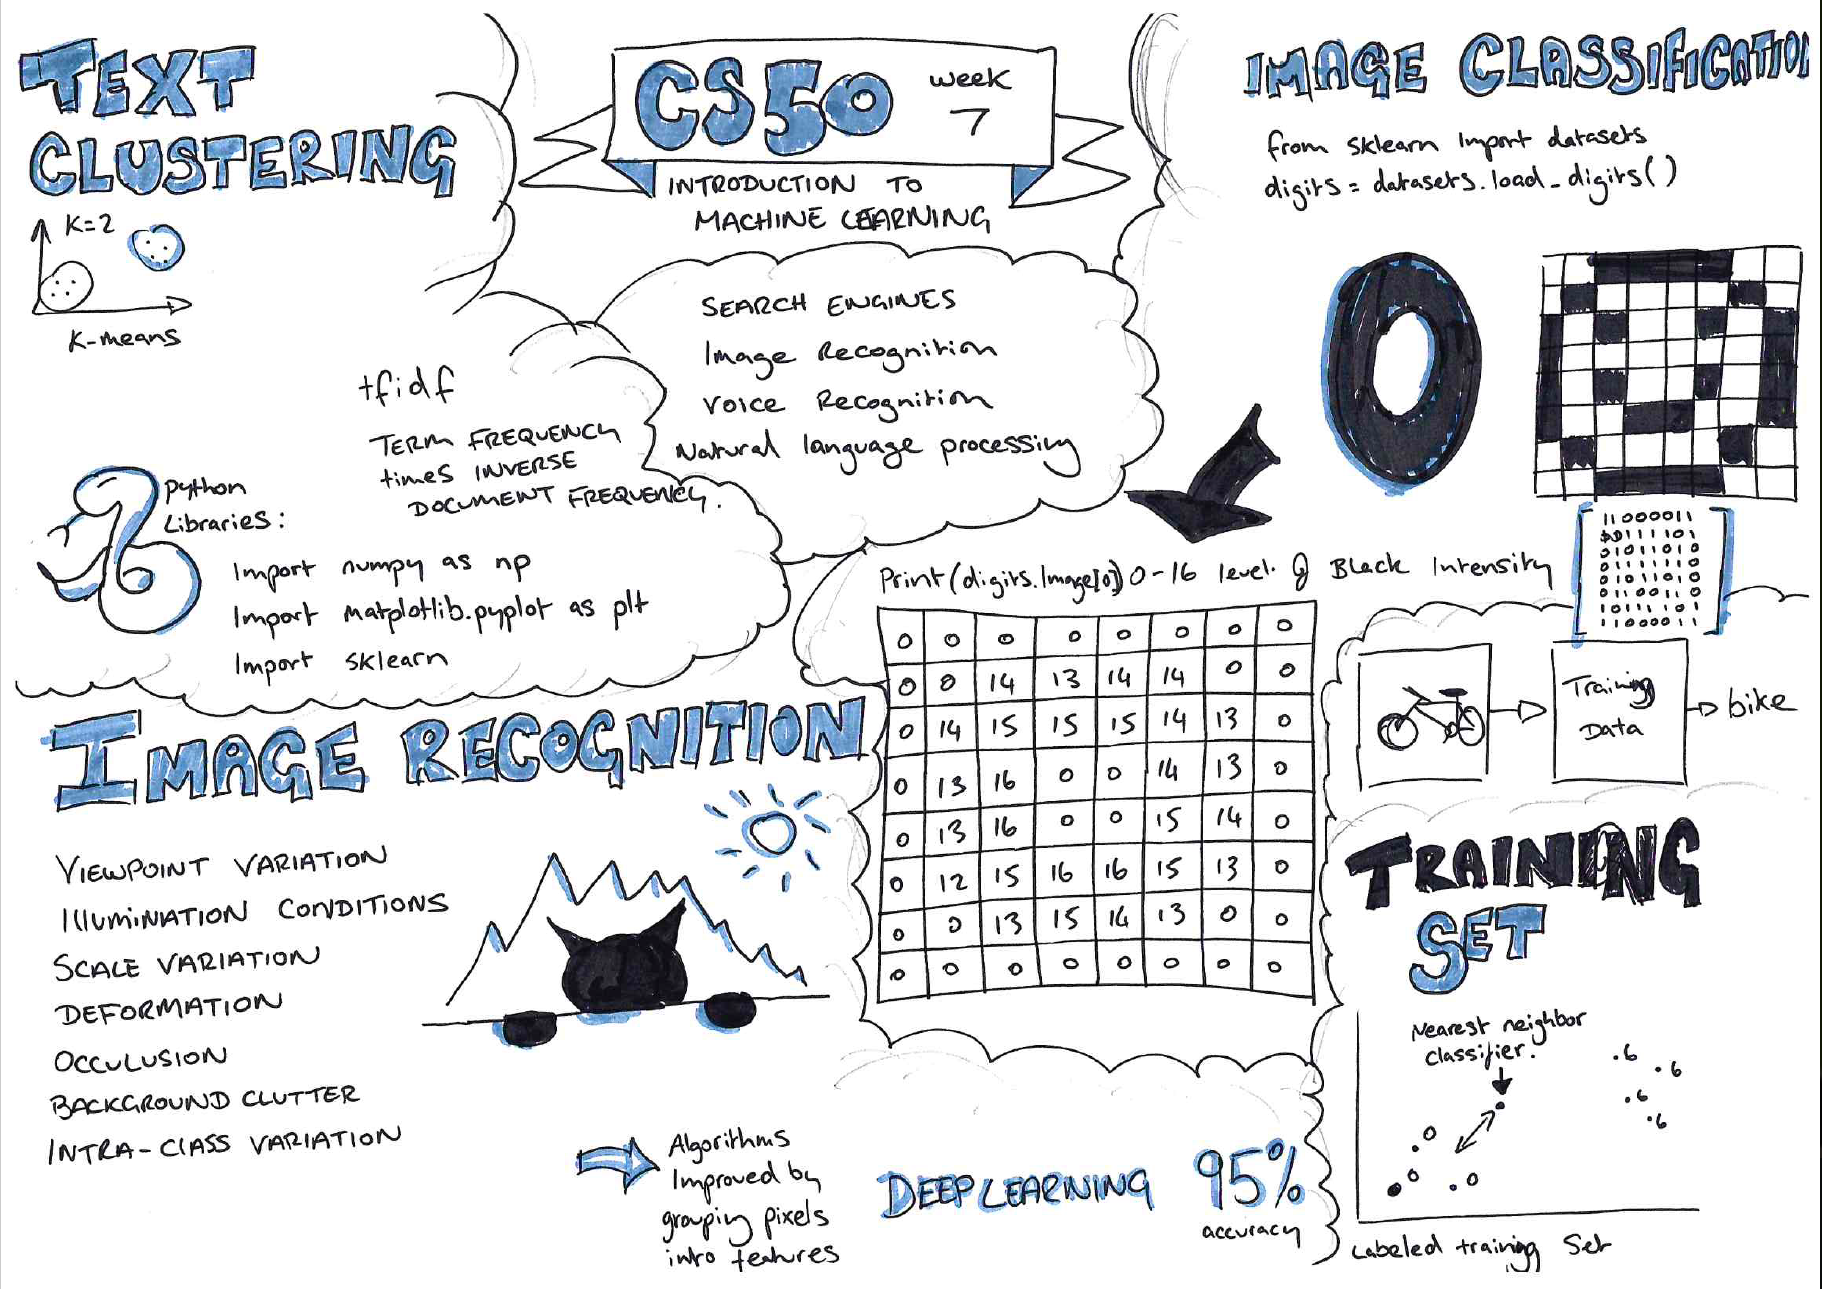 TEXT
CLUSTERING
K=2
K-means
tfidf
TERM FREQUENCY
times INVERSE
DOCUMENT FREQUENCY.
Python
Libraries:
Import numpy as np
Import matplotlib.pyplot as plt
Import sklearn
CS50 week
7
INTRODUCTION TO
MACHINE LEARNING
SEARCH ENGINES
Image Recognition
Voice Recognition
Natural language processing
IMAGE CLASSIFICATION
from sklearn Import datasets
digits = datasets.load_digits()
11000011
1011010
01011010
01100110
11000011
Print(digits.Image[0]) 0-16 level of Black Intensity
0 0 0 0 0 0 0 0
0 0 14 13 14 14 0 0
0 14 15 15 15 14 13 0
0 13 16 0 0 14 13 0
0 13 16 0 0 15 14 0
0 12 15 16 16 15 13 0
0 0 13 15 14 13 0 0
0 0 0 0 0 0 0 0
Training
Data
bike
IMAGE RECOGNITION
VIEWPOINT VARIATION
IllumINATION CONDITIONS
SCALE VARIATION
DEFORMATION
OCCULUSION
BACKGROUND CLUTTER
INTRA-CLASS VARIATION
Algorithms
Improved by
grouping pixels
into features
DEEP LEARNING 95%
accuracy
TRAINING
SET
Nearest neighbor
classifier.
6
6
6
6
0
0
0
Labeled training Set